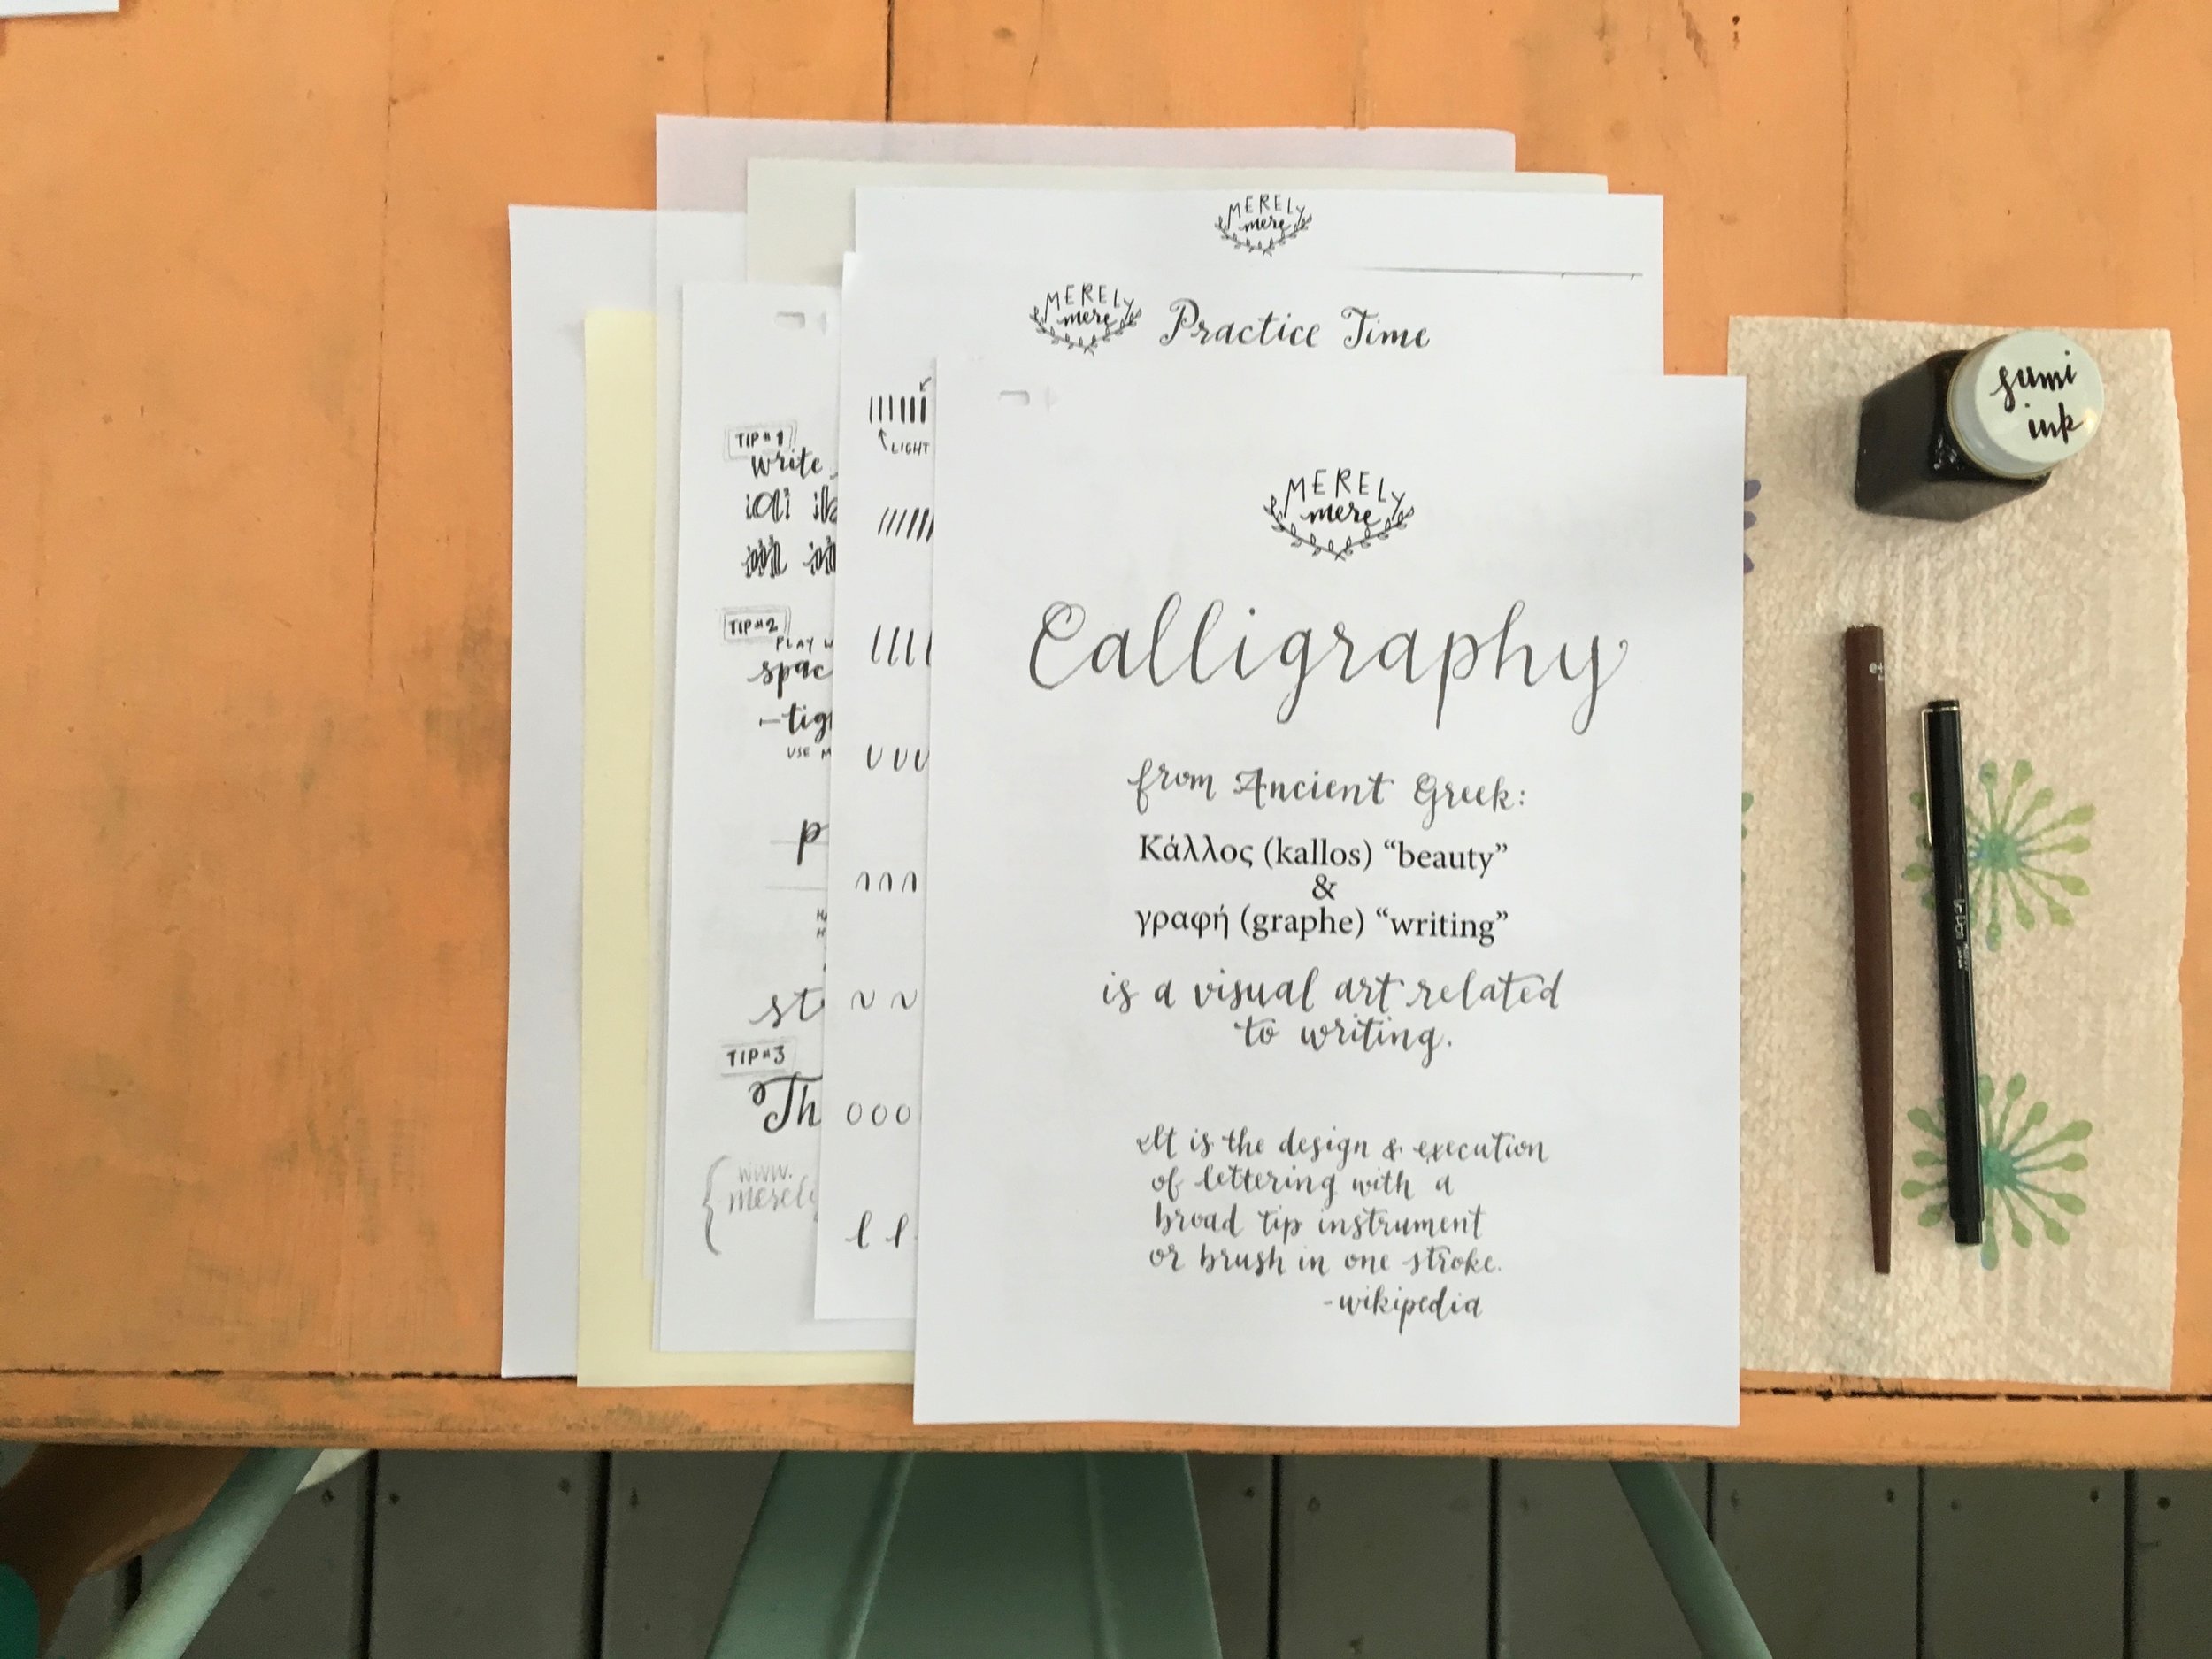 MERELY
mere
MERELY
mere
Practice Time
LIGHT
TIP #1
write
TIP #2
PLAY
USE
TIP #3
Th
www.
MERELY
mere
Calligraphy
from Ancient Greek:
Κάλλος (kallos) “beauty”
&
γραφή (graphe) “writing”
is a visual art related
to writing.
It is the design & execution
of lettering with a
broad tip instrument
or brush in one stroke.
-wikipedia
sumi
ink